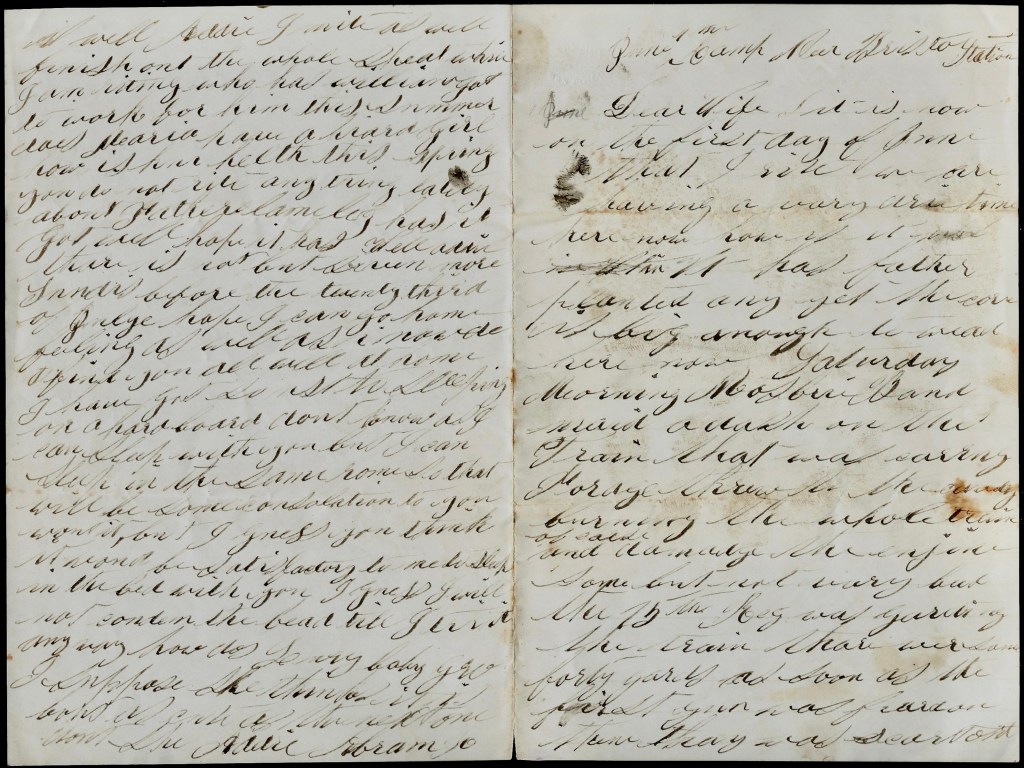 June 1st Camp Near Bristo Station
Dear Wife it is now
on the first day of June
that I rite we are
having a vary dri time
here now how is it
it has father
planted any yet the corn
is big anough to wead
here now Saturday
Morning Mosbie Band
maid a dash on the
Train that was carring
Forage threw to the
burning the whole train
of cards
and damedge the enjine
some but not vary bad
the 15th Reg was garding
the train thare wer some
forty gards as soon as the
first gun was feard on
them thay was scart out
well Addie I mite as well
finish out the whole sheat while
I am riting who has william got
to work for him this summer
does Maria have a hiard girl
how is her helth this spring
you do not rite any thing latly
about lame leg has it
got well hope it has well addie
there is not but seven more
Sundys before the twenty third
of Julye hope I can go home
feling as well as i now do
I find you all well at home
I have got so ust to sleeping
on a hard board dont know as I
can sleap with you but I can
sleap in the same rome so that
will be some consolation to you
wont it, but I guess you think
it woud be satisfactory to me to sleap
in the bed with you I guess I will
not condem the bead till I tri it
any way how dos baby
I suppose she thinks it
bout as cute as the next one
dont she Addie Abram